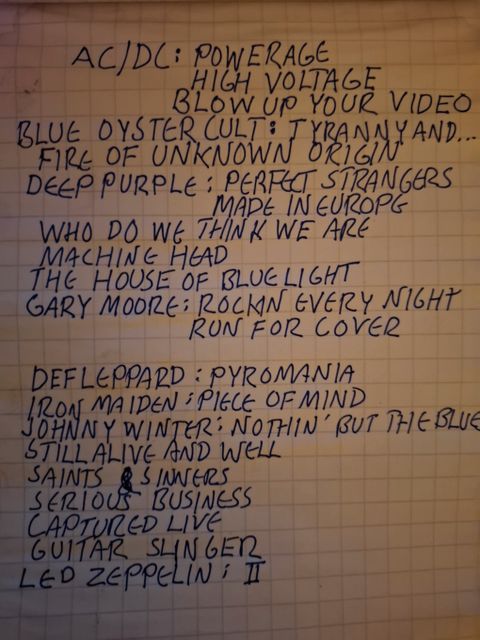 AC/DC: POWERAGE
HIGH VOLTAGE
BLOW UP YOUR VIDEO
BLUE OYSTER CULT: TYRANNY AND...
FIRE OF UNKNOWN ORIGIN
DEEP PURPLE: PERFECT STRANGERS
MADE IN EUROPE
WHO DO WE THINK WE ARE
MACHINE HEAD
THE HOUSE OF BLUE LIGHT
GARY MOORE: ROCKIN EVERY NIGHT
RUN FOR COVER
DEF LEPPARD: PYROMANIA
IRON MAIDEN: PIECE OF MIND
JOHNNY WINTER: NOTHIN' BUT THE BLUE
STILL ALIVE AND WELL
SAINTS & SINNERS
SERIOUS BUSINESS
CAPTURED LIVE
GUITAR SLINGER
LED ZEPPELIN: II